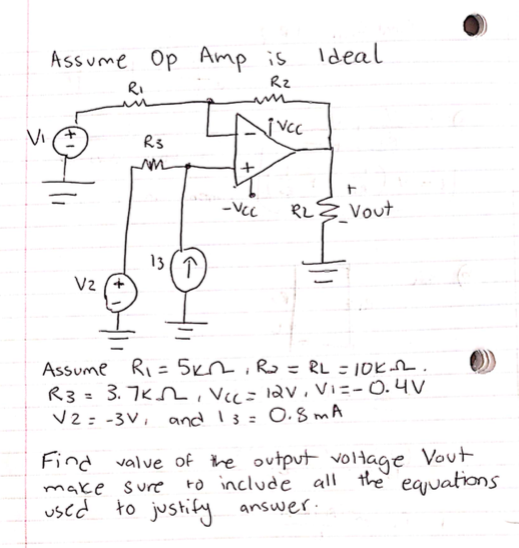 Assume Op Amp is Ideal
R1
R2
V1
+
-
R3
-
Vcc
+
-Vcc
RL
+
Vout
-
I3
V2
+
-
Assume R1 = 5KΩ, R2 = RL = 10KΩ.
R3 = 3.7KΩ, Vcc = 12V, V1 = -0.4V
V2 = -3V, and I3 = 0.8mA
Find value of the output voltage Vout
make sure to include all the equations
used to justify answer.